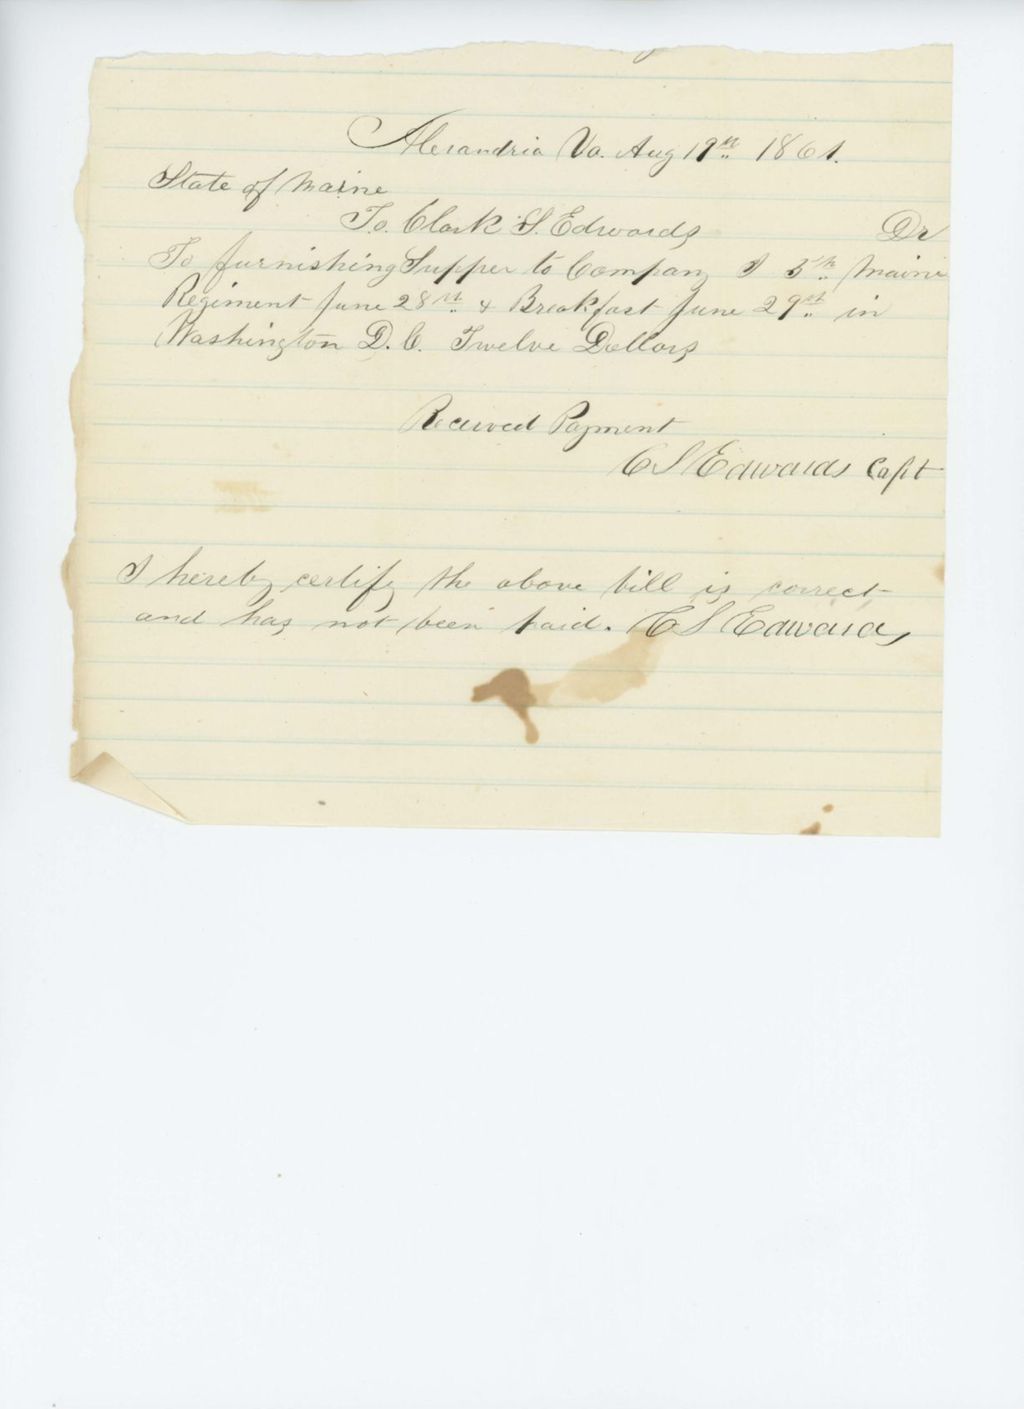 Alexandria Va. Aug 19th 1861.
State of Maine
To. Clark S. Edwards Dr
To furnishing Supper to Company I 5th Maine
Regiment June 28st & Breakfast June 29st in
Washington D.C. Twelve Dollars
Received Payment
C S Edwards Capt
I hereby certify the above bill is correct
and has not been paid. C S Edwards